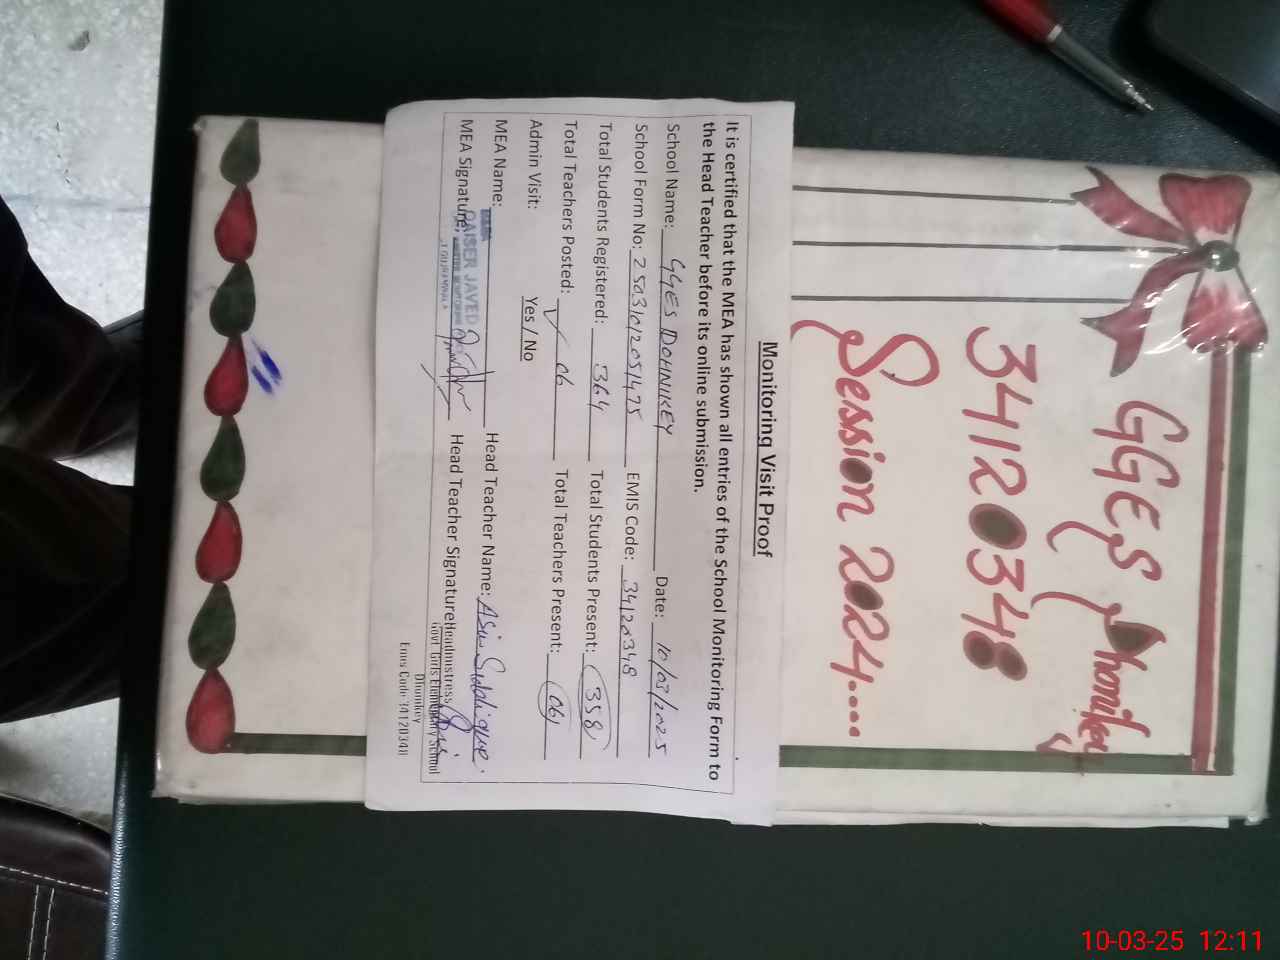 GGES Dhonikey
34120348
Session 2024....
Monitoring Visit Proof
It is certified that the MEA has shown all entries of the School Monitoring Form to
the Head Teacher before its online submission.
School Name: GGES DOHNIKEY Date: 10/03/2025
School Form No: 25031012051475 EMIS Code: 34120348
Total Students Registered: 364 Total Students Present: 358
Total Teachers Posted: 06 Total Teachers Present: 06
Admin Visit: Yes / No
MEA Name: QAISER JAVED Head Teacher Name: Asia Siddique
MEA Signature: Head Teacher Signature: Headmistress
Govt. Girls Elementary School
Dhunikey
Emis Code 34120348
10-03-25 12:11